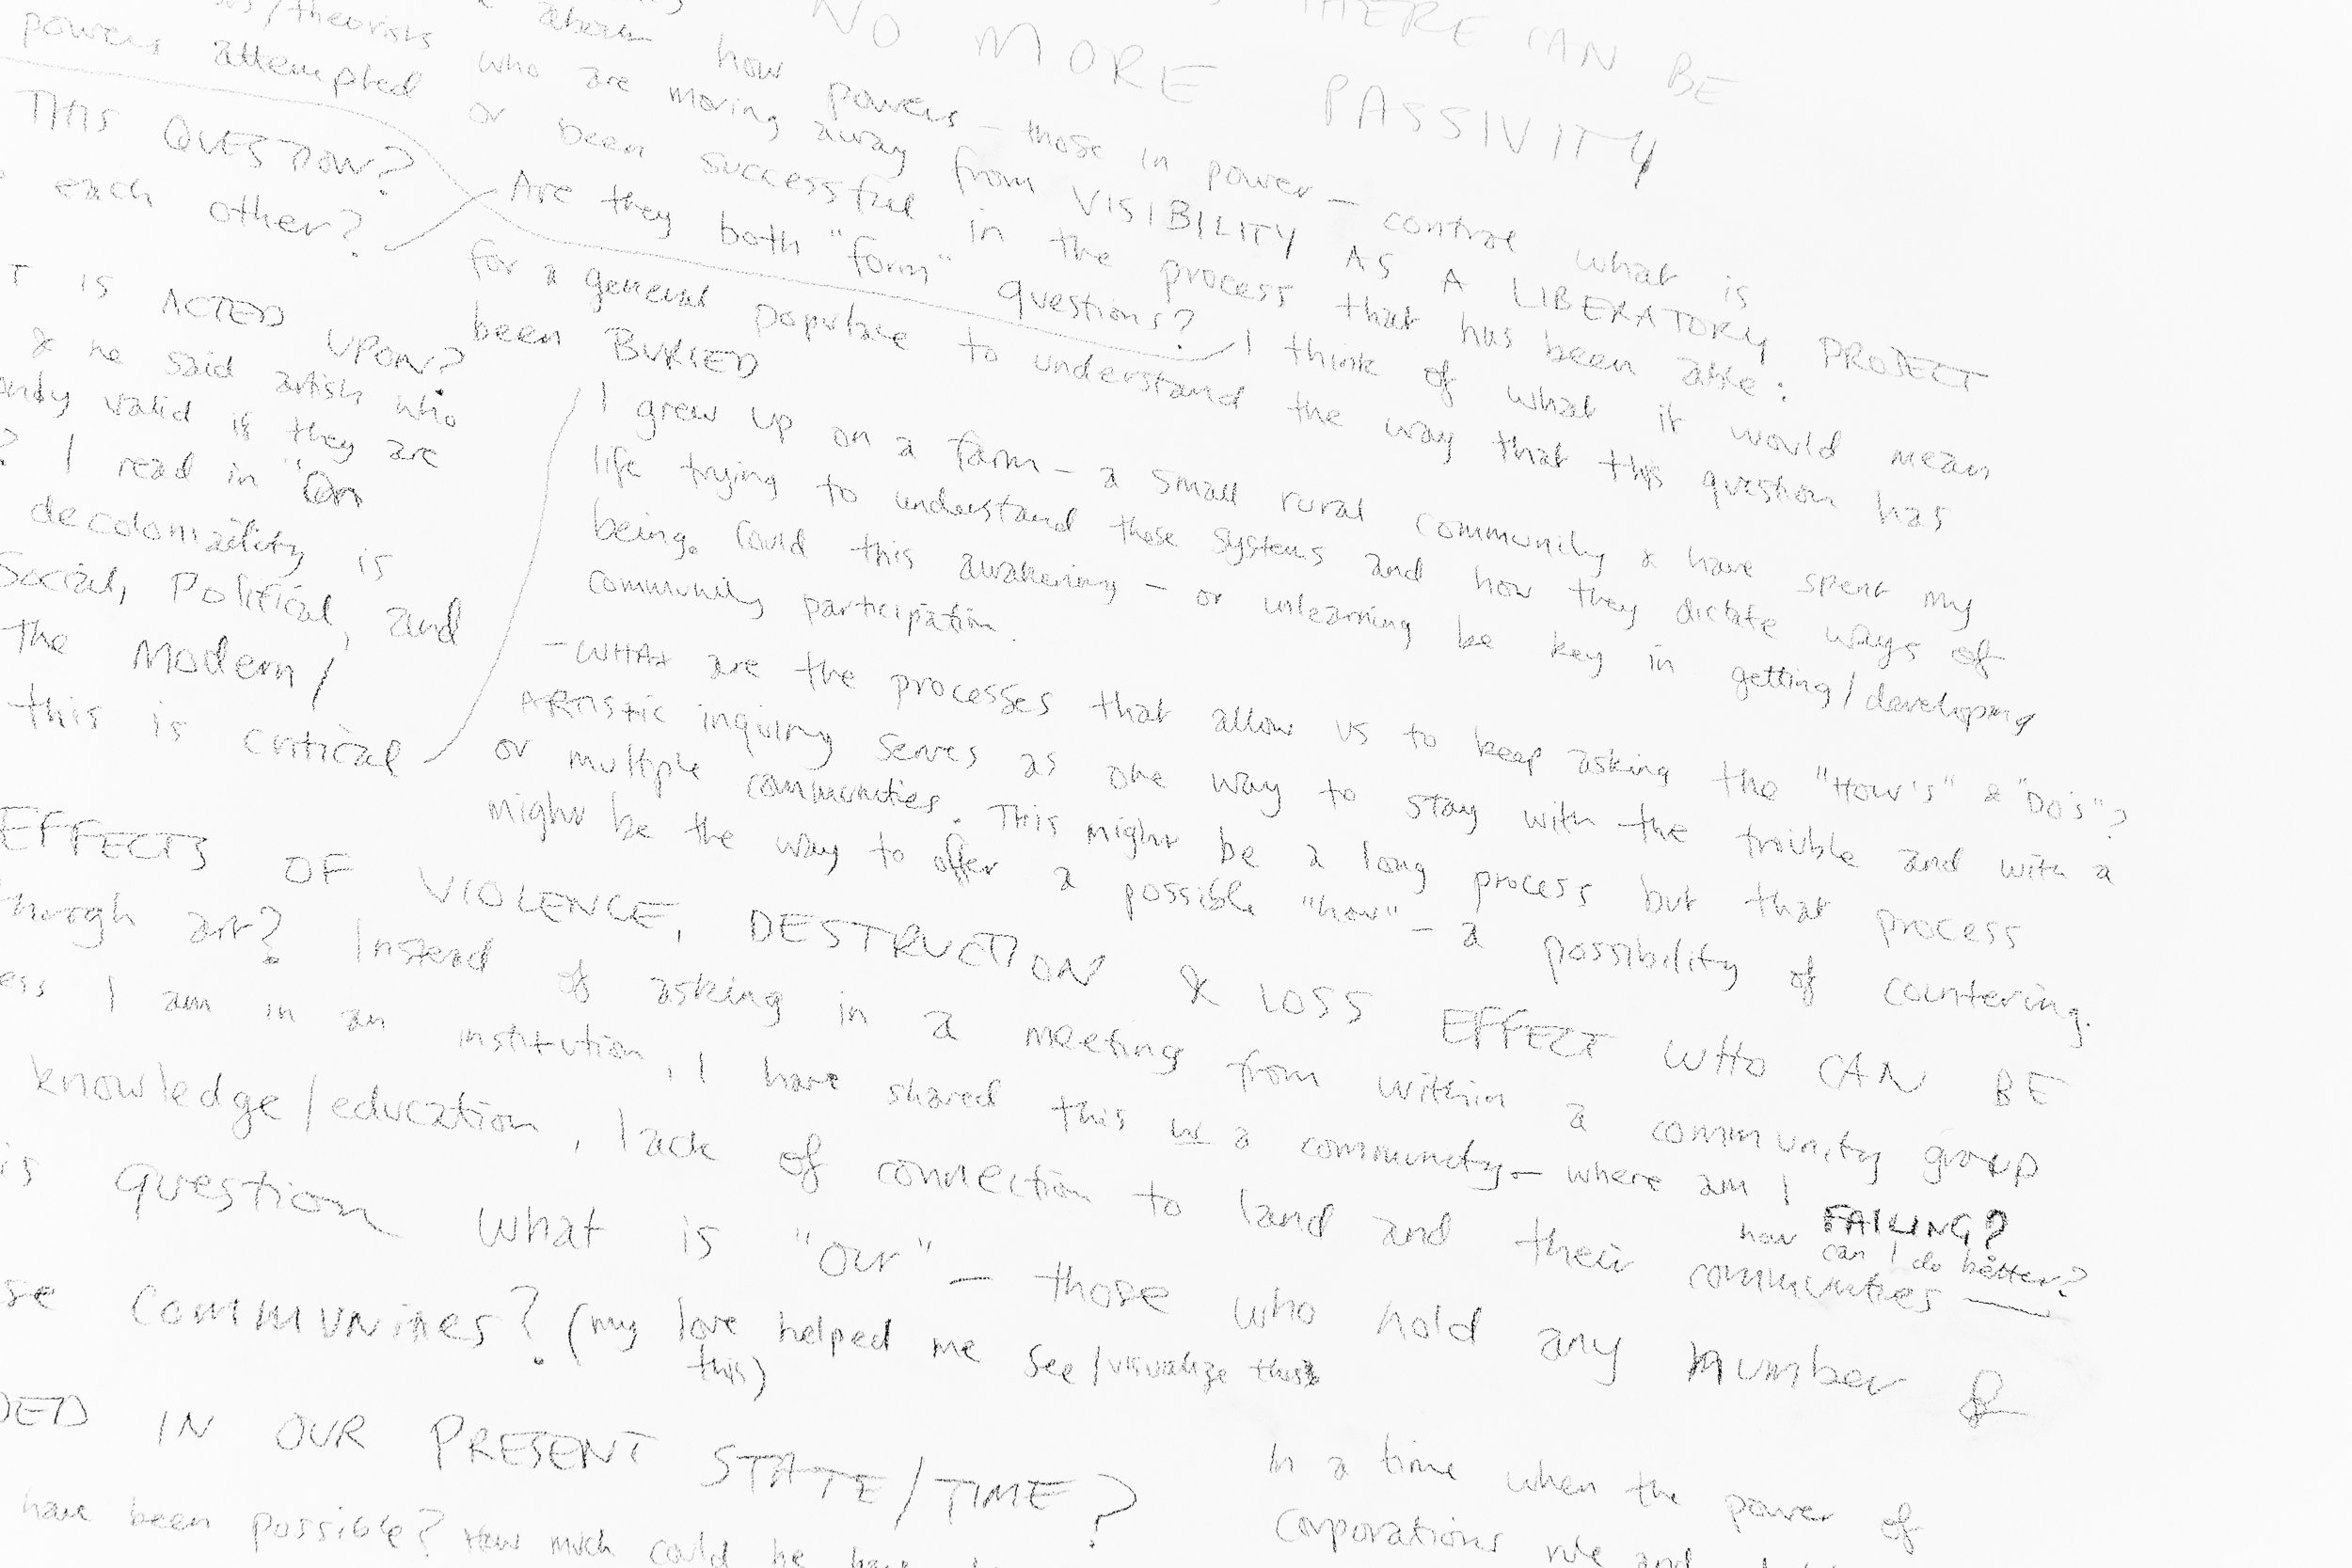 THERE CAN BE
NO MORE PASSIVITY
/theorists who are moving away from VISIBILITY AS A LIBERATORY PROJECT
about how powers - those in power - control what is
powers attempted or been successful in the process that has been able:
THIS QUESTION?
each other?
Are they both "form" questions? I think of what it would mean
for a general populace to understand the way that this question has
been BURIED
IS ACTED UPON?
& he said artists who
only valid if they are
? I read in "On
decoloniality is
Social, Political, and
the Modern/
this is critical
I grew up on a farm - a small rural community & have spent my
life trying to understand those systems and how they dictate ways of
being. Could this awakening - or unlearning be key in getting/developing
community participation.
- WHAt are the processes that allow us to keep asking the "How's" & "Do's"?
ARTISTIC inquiry serves as one way to stay with the trouble and with a
or multiple communities. This might be a long process but that process
might be the way to offer a possible "how" - a possibility of countering.
EFFECTS OF VIOLENCE, DESTRUCTION & LOSS EFFECT WHO CAN BE
through art? Instead of asking in a meeting from within a community group
I am in an institution, I have shared this w a community - where am I FAILING?
how can I do better?
knowledge/education, lack of connection to land and their communities —
is question what is "our" - those who hold any number of
se COMMUNITIES? (my love helped me see/visualize this
this)
DED IN OUR PRESENT STATE/TIME?
have been possible? How much could be have
In a time when the power of
Corporations rule and